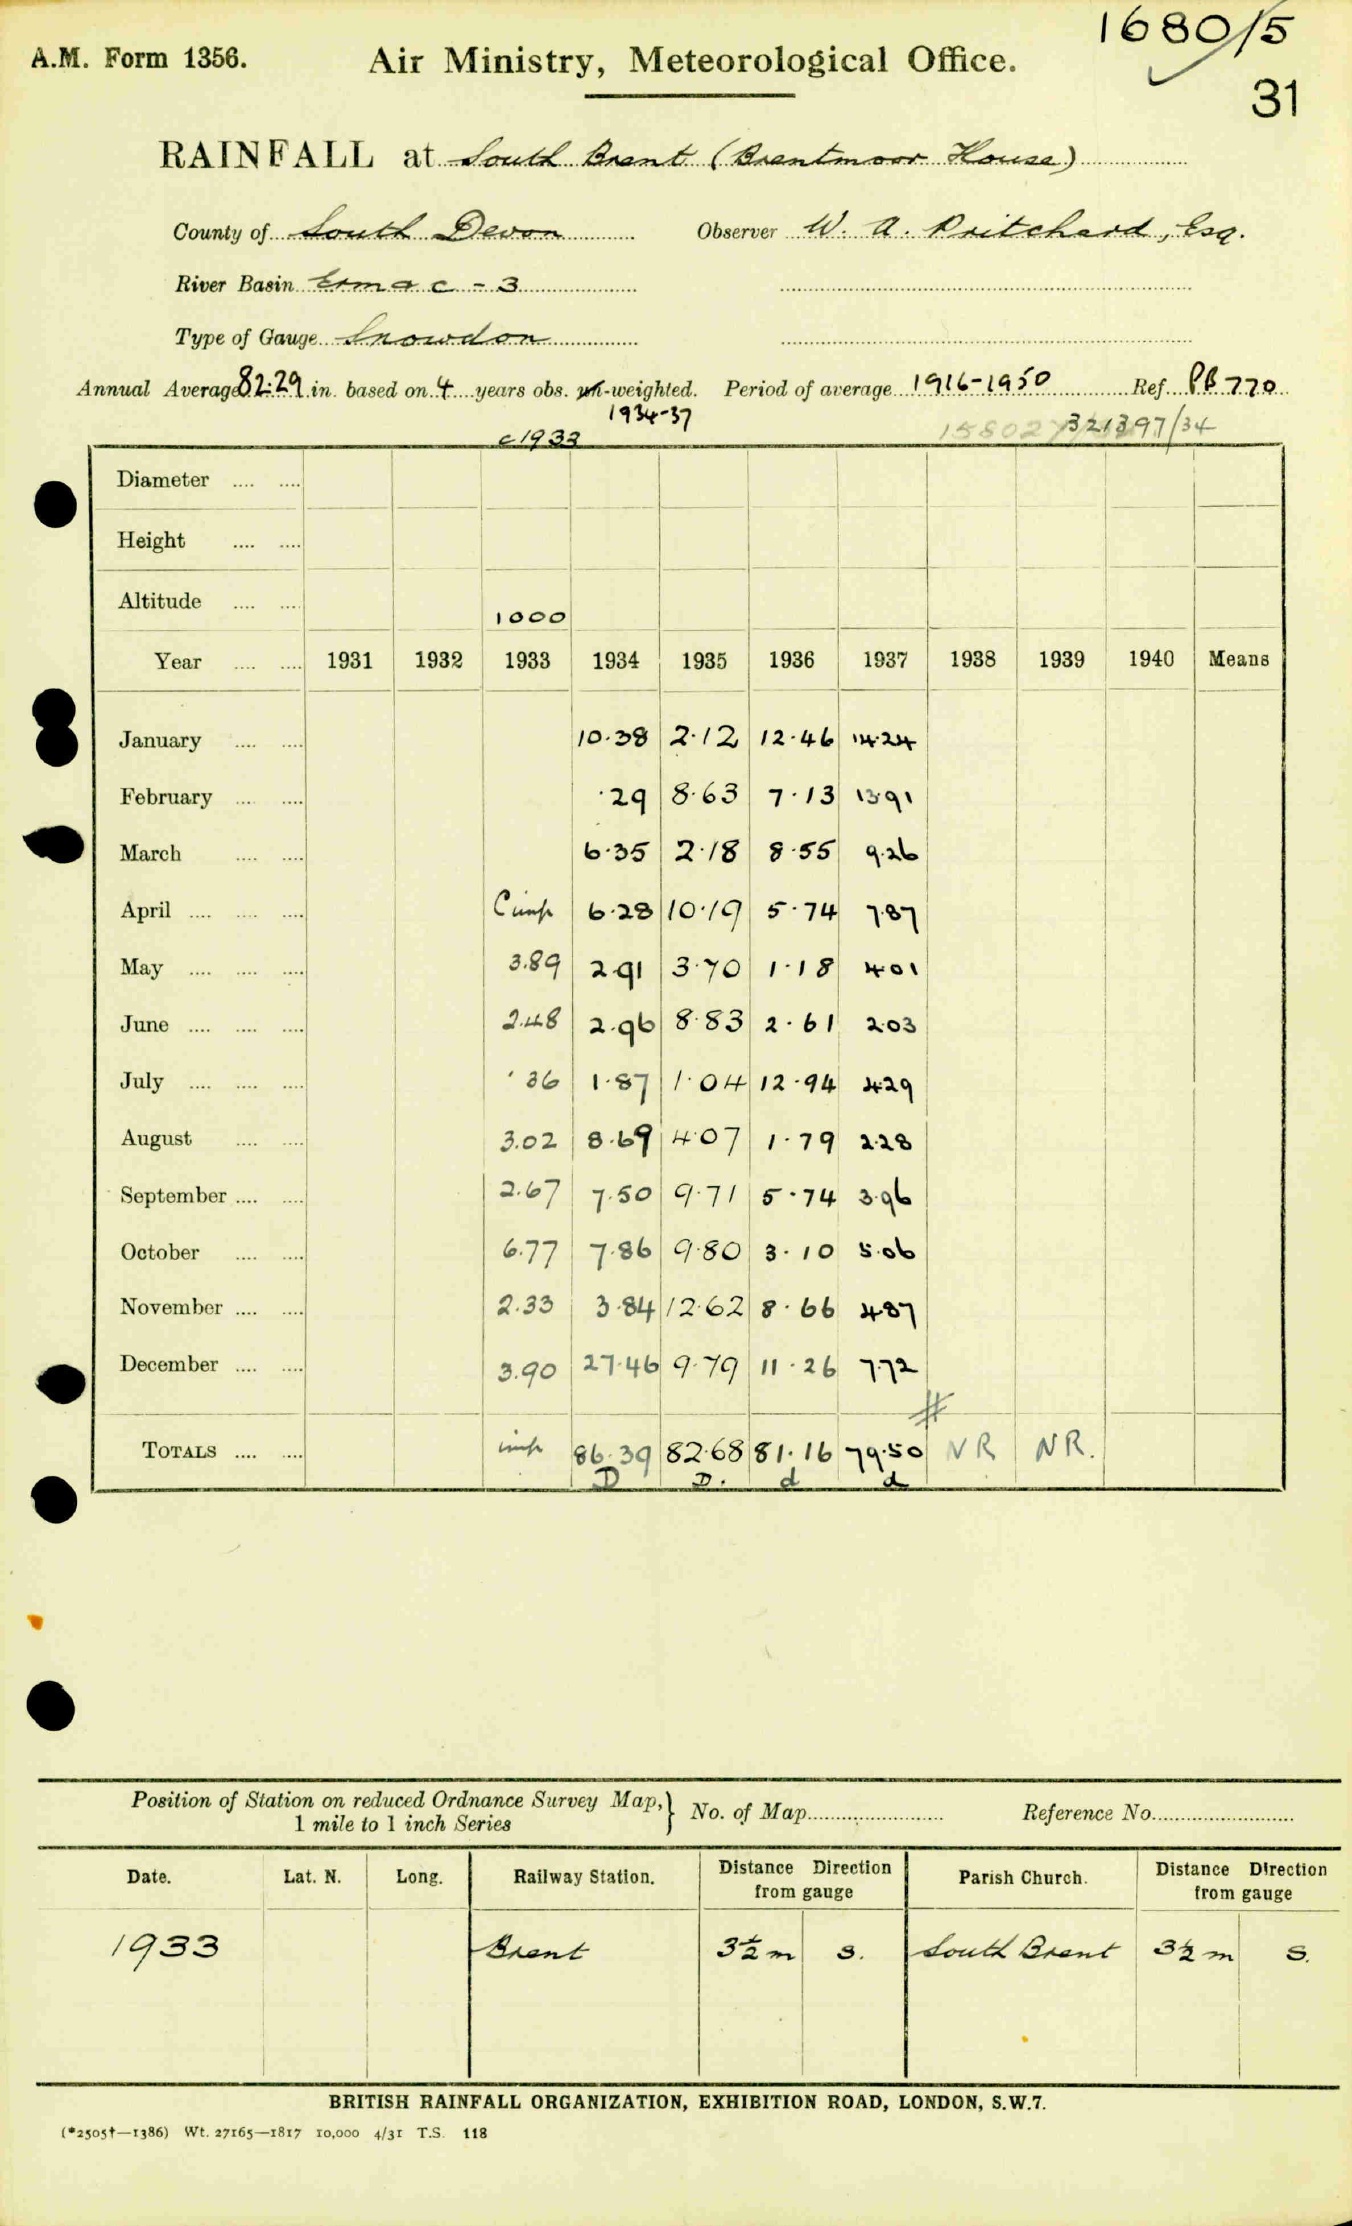 1680/5
A.M. Form 1356. Air Ministry, Meteorological Office.
31
RAINFALL at South Brent (Brentmoor House)
County of South Devon Observer W. A. Pritchard, Esq.
River Basin Erme &c - 3
Type of Gauge Snowdon
Annual Average 82.29 in. based on 4 years obs. un-weighted. Period of average 1916-1950 Ref. PB 770
1934-37
c 1933 321397/34
Diameter .... ....
Height .... ....
Altitude .... .... 1000
Year .... .... 1931 1932 1933 1934 1935 1936 1937 1938 1939 1940 Means
January .... .... 10.38 2.12 12.46 14.24
February .... .... .29 8.63 7.13 13.91
March .... .... 6.35 2.18 8.55 9.26
April .... .... .... 6.28 10.19 5.74 7.87
May .... .... .... 3.89 2.91 3.70 1.18 4.01
June .... .... .... 2.48 2.96 8.83 2.61 2.03
July .... .... .... .36 1.87 1.04 12.94 4.29
August .... .... 3.02 8.69 4.07 1.79 2.28
September .... .... 2.67 7.50 9.71 5.74 3.96
October .... .... 6.77 7.86 9.80 3.10 5.06
November .... .... 2.33 3.84 12.62 8.66 4.87
December .... .... 3.90 27.46 9.79 11.26 7.72
TOTALS .... .... imp 86.39 82.68 81.16 79.50 NR NR.
D D. d d
Position of Station on reduced Ordnance Survey Map,} No. of Map Reference No.
1 mile to 1 inch Series
Date. Lat. N. Long. Railway Station. Distance Direction from gauge Parish Church. Distance Direction from gauge
1933 Brent 3½ m S. South Brent 3½ m S.
BRITISH RAINFALL ORGANIZATION, EXHIBITION ROAD, LONDON, S.W.7.
(*2505†—1386) Wt. 27165—1817 10,000 4/31 T.S. 118